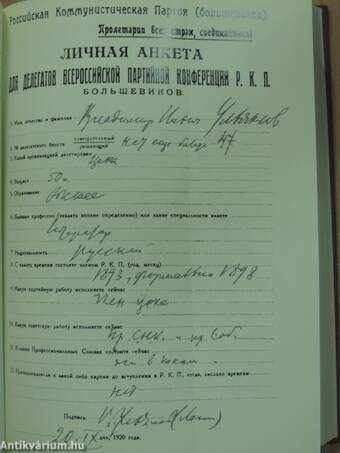 Российская Коммунистическая Партия (большевиков).
Пролетарии всех стран, соединяйтесь!
ЛИЧНАЯ АНКЕТА
ДЛЯ ДЕЛЕГАТОВ ВСЕРОССИЙСКОЙ ПАРТИЙНОЙ КОНФЕРЕНЦИИ Р. К. П.
БОЛЬШЕВИКОВ.
1. Имя, отчество и фамилия Владимир Ильич Ульянов
2. № делегатского билета совещательный решающий
3. Какой организацией делегирован Цека
4. Возраст 50 л
5. Образование высшее
6. Бывшая профессия (указать вполне определенно) или какие специальности знаете
литератор
7. Национальность русский
8. С какого времени состоите членом Р. К. П. (год, месяц)
1893, формально 1898
9. Какую партийную работу исполняете сейчас
член цека
10. Какую советскую работу исполняете сейчас
пр. СНК. и пр. Соб.
11. В каком Профессиональном Союзе состоите сейчас
ни в каком
12. Принадлежали к какой либо партии до вступления в Р. К. П., когда, сколько времени
нет
Подпись В. Ульянов (Ленин)
20. IX дня, 1920 года.
antikvarium.hu
Antikvárium.hu